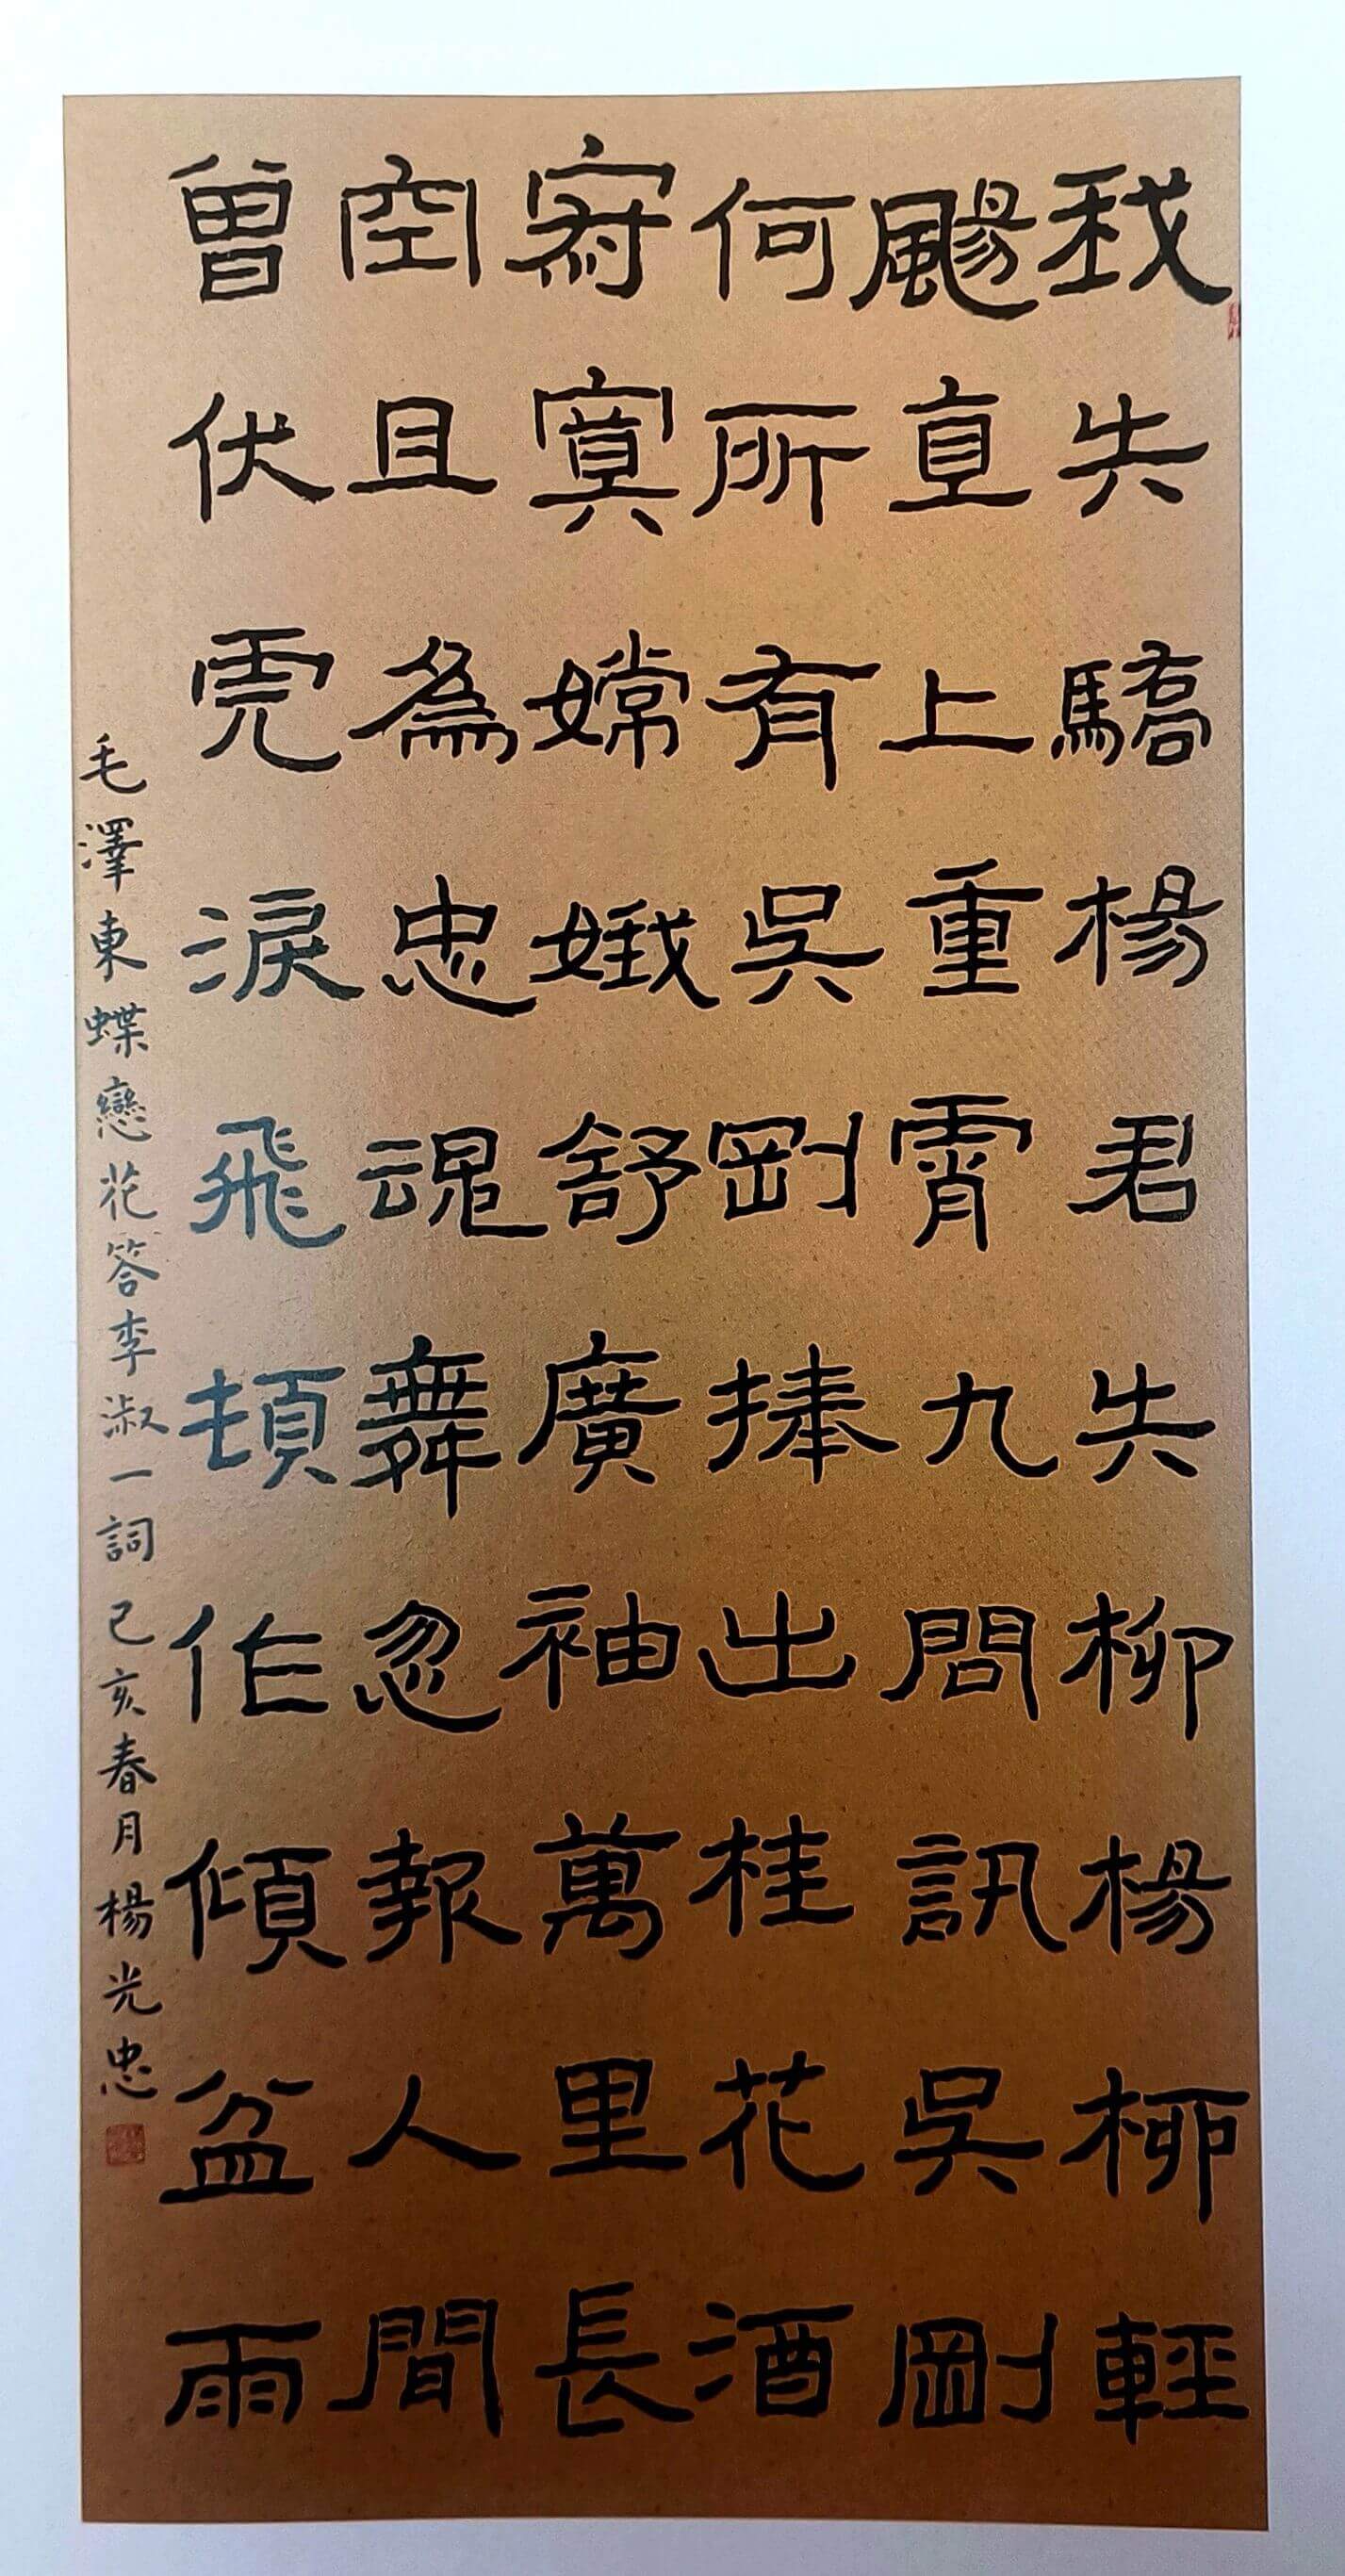 我失驕楊君失柳楊柳輕
颺直上重霄九問訊吳剛
何所有吳剛捧出桂花酒
寂寞嫦娥舒廣袖萬里長
空且為忠魂舞忽報人間
曾伏虎淚飛頓作傾盆雨
毛澤東蝶戀花答李淑一詞己亥春月楊光忠